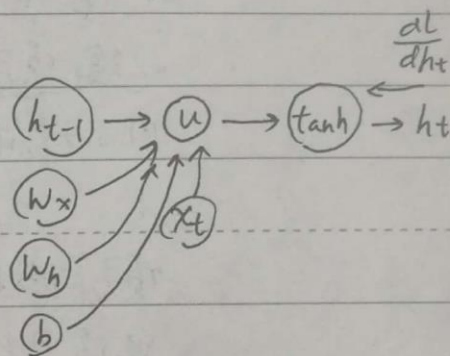 dL
dht
ht-1 → u → tanh → ht
Wx
xt
Wh
b